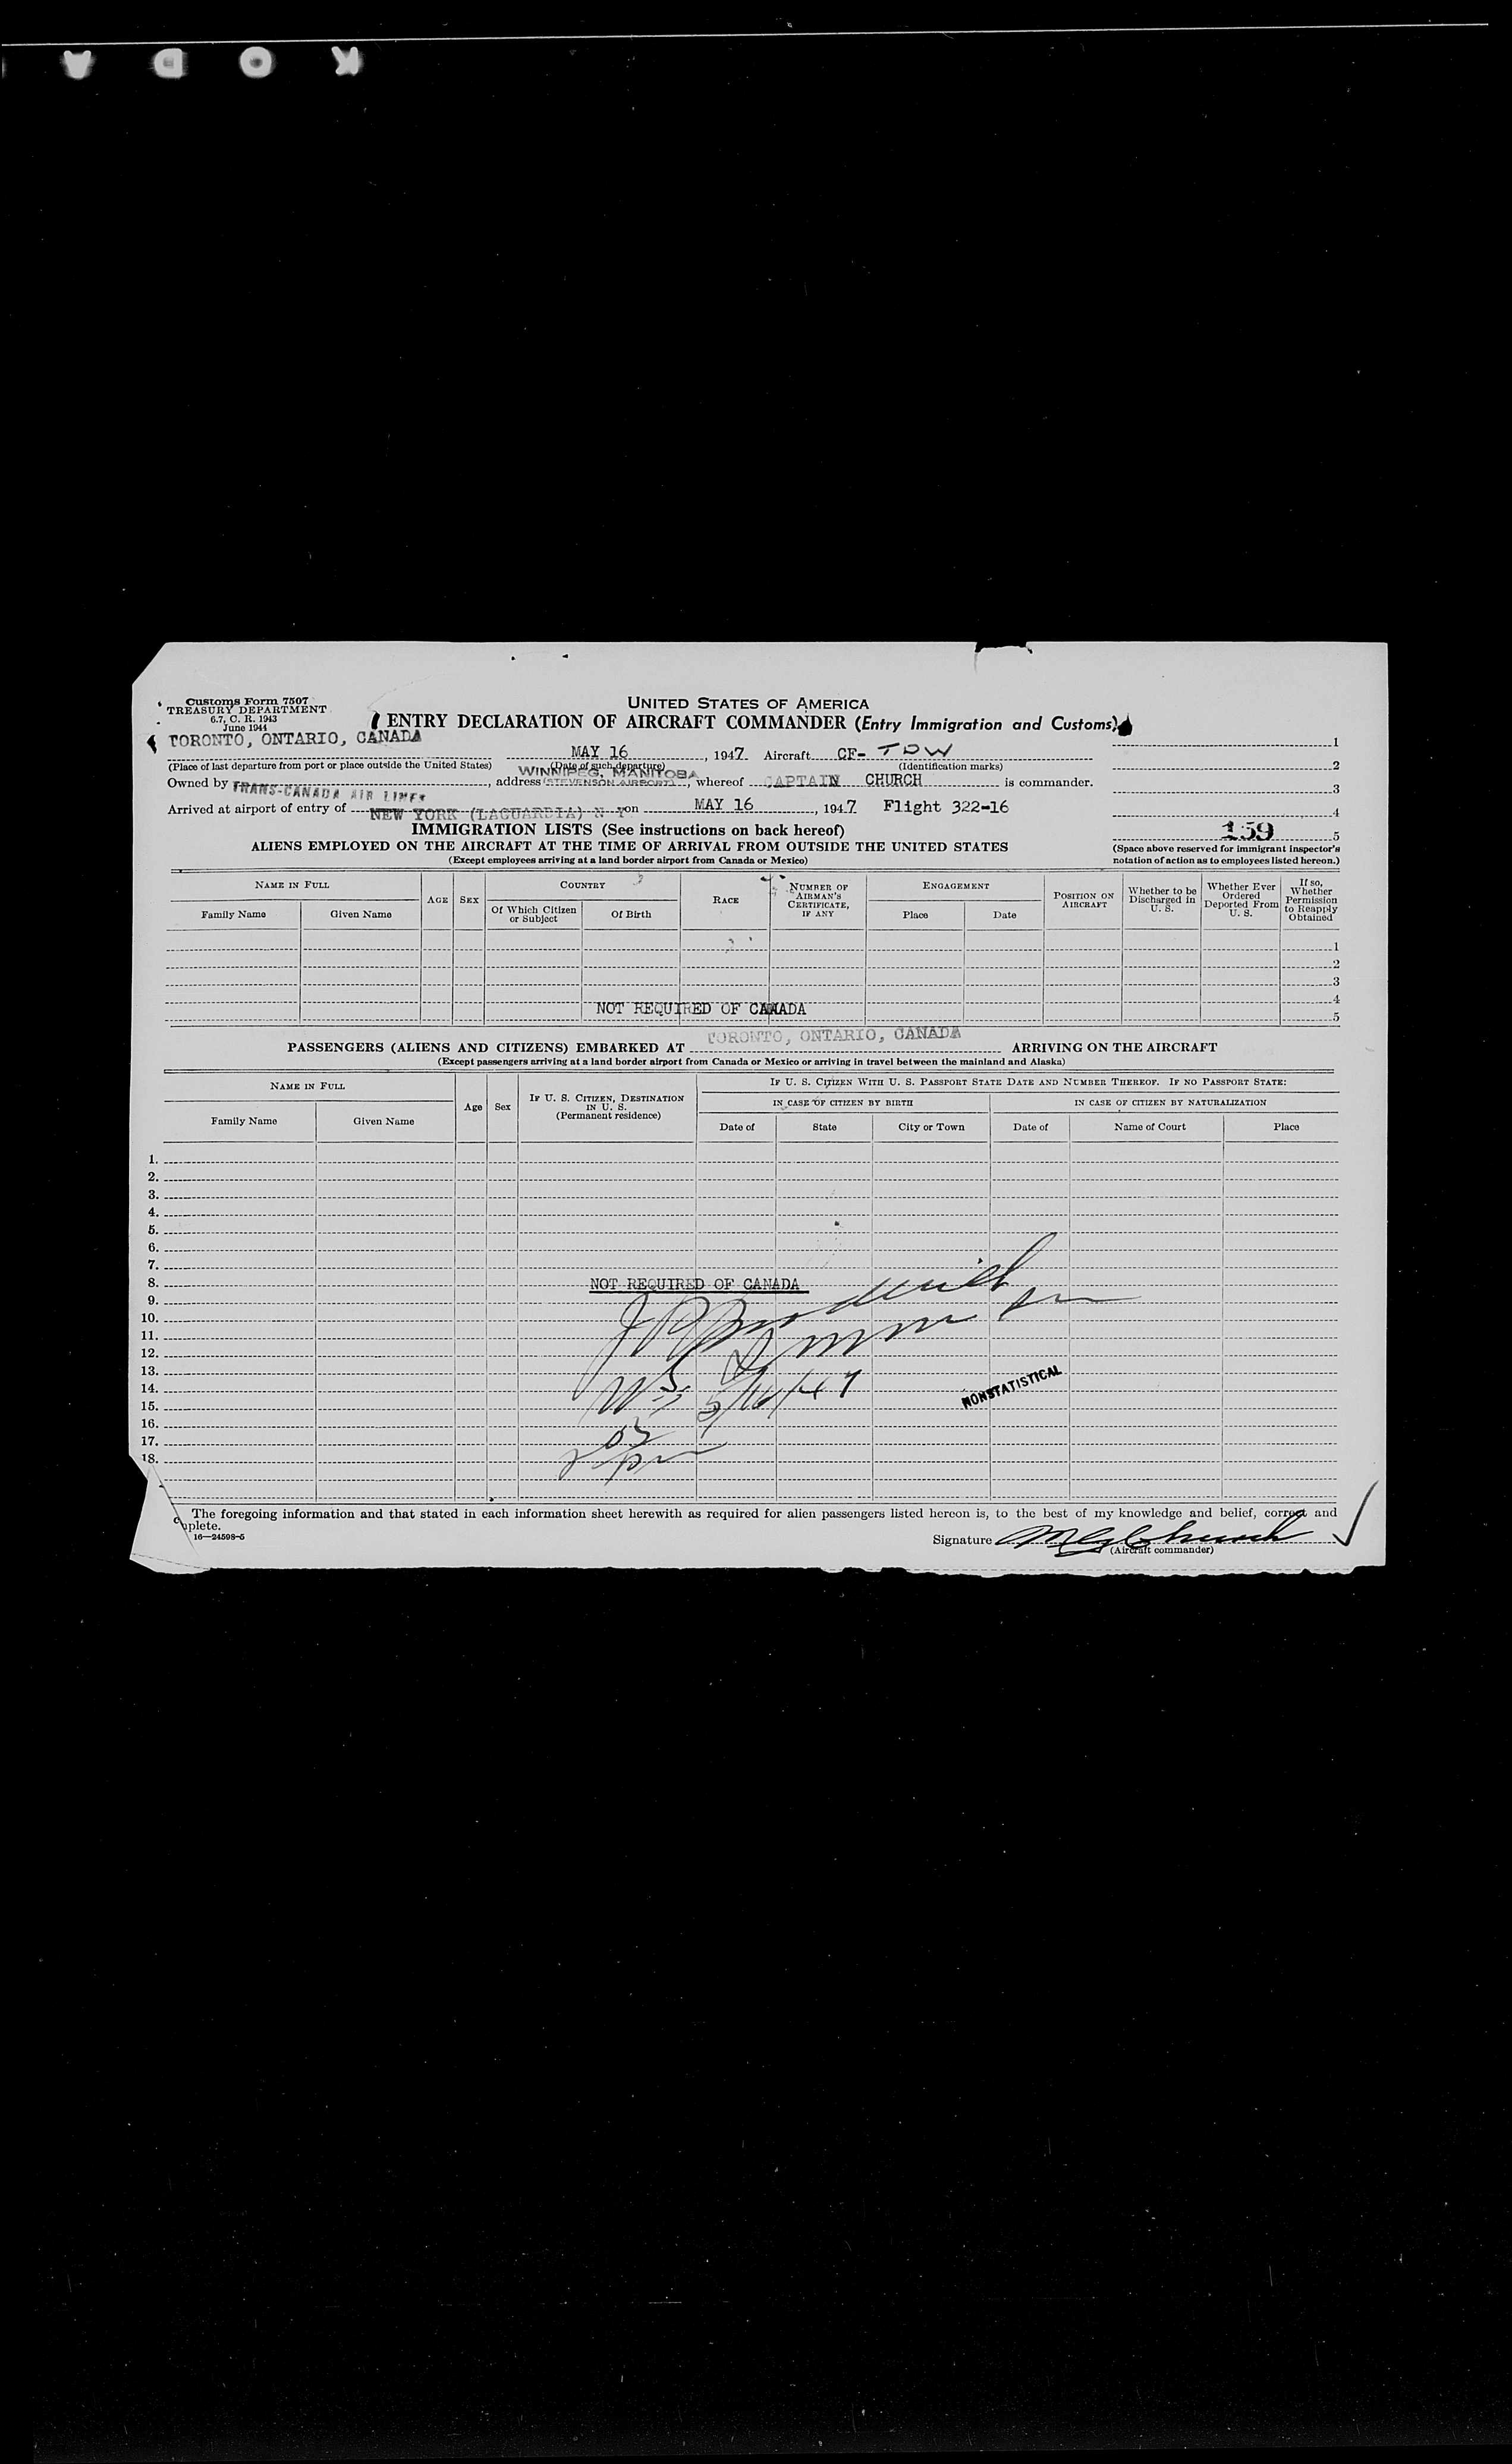 KODA
Customs Form 7507
TREASURY DEPARTMENT
6.7, C. R. 1943
June 1944
UNITED STATES OF AMERICA
ENTRY DECLARATION OF AIRCRAFT COMMANDER (Entry Immigration and Customs)
TORONTO, ONTARIO, CANADA
MAY 16, 1947 Aircraft CF-TDW
(Place of last departure from port or place outside the United States) (Date of such departure) (Identification marks)
WINNIPEG, MANITOBA
Owned by TRANS-CANADA AIR LINES, address (STEVENSON AIRPORT), whereof CAPTAIN CHURCH is commander.
Arrived at airport of entry of NEW YORK (LAGUARDIA) N Y on MAY 16, 1947 Flight 322-16
1
2
3
4
159 5
(Space above reserved for immigrant inspector's notation of action as to employees listed hereon.)
IMMIGRATION LISTS (See instructions on back hereof)
ALIENS EMPLOYED ON THE AIRCRAFT AT THE TIME OF ARRIVAL FROM OUTSIDE THE UNITED STATES
(Except employees arriving at a land border airport from Canada or Mexico)
NAME IN FULL
Family Name Given Name
AGE SEX
COUNTRY
Of Which Citizen or Subject
Of Birth
RACE
NUMBER OF AIRMAN'S CERTIFICATE, IF ANY
ENGAGEMENT
Place Date
POSITION ON AIRCRAFT
Whether to be Discharged in U. S.
Whether Ever Ordered Deported From U. S.
If so, Whether Permission to Reapply Obtained
1
2
3
4
NOT REQUIRED OF CANADA
5
TORONTO, ONTARIO, CANADA
PASSENGERS (ALIENS AND CITIZENS) EMBARKED AT ARRIVING ON THE AIRCRAFT
(Except passengers arriving at a land border airport from Canada or Mexico or arriving in travel between the mainland and Alaska)
NAME IN FULL
Family Name Given Name
Age Sex
IF U. S. CITIZEN, DESTINATION IN U. S.
(Permanent residence)
IF U. S. CITIZEN WITH U. S. PASSPORT STATE DATE AND NUMBER THEREOF. IF NO PASSPORT STATE:
IN CASE OF CITIZEN BY BIRTH IN CASE OF CITIZEN BY NATURALIZATION
Date of State City or Town Date of Name of Court Place
1.
2.
3.
4.
5.
6.
7.
8. NOT REQUIRED OF CANADA
9.
10.
11.
12.
13.
14. 5/16/47 NONSTATISTICAL
15.
16.
17.
18.
The foregoing information and that stated in each information sheet herewith as required for alien passengers listed hereon is, to the best of my knowledge and belief, correct and
mplete.
16—24598-5
Signature Church
(Aircraft commander)